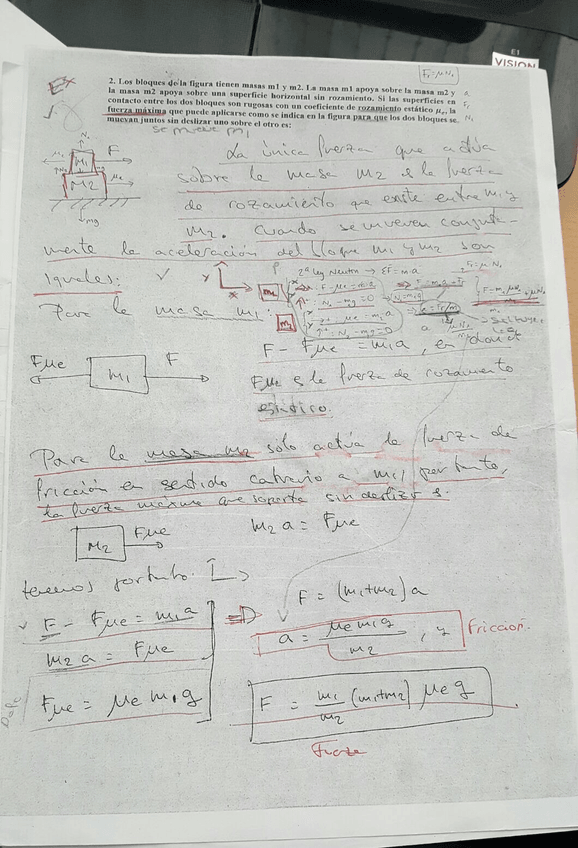 E1
VISION
Fr = μ N₁
Ex
2. Los bloques de la figura tienen masas m1 y m2. La masa m1 apoya sobre la masa m2 y
la masa m2 apoya sobre una superficie horizontal sin rozamiento. Si las superficies en
contacto entre los dos bloques son rugosas con un coeficiente de rozamiento estático μe, la
fuerza máxima que puede aplicarse como se indica en la figura para que los dos bloques se
muevan juntos sin deslizar uno sobre el otro es:
se mueve m1
F
M1
M2
mg
La única fuerza que actúa
sobre la masa m2 es la fuerza
de rozamiento que existe entre m1 y
m2. Cuando se mueven conjunta-
mente la aceleración del bloque m1 y m2 son
iguales:
2ª ley Newton → ΣF = m·a
y
x
m1
m2
Para la masa m1:
F - Fμe = m1a, en donde
Fμe es la fuerza de rozamiento
estático.
Fμe
m1
F
Para la masa m2 solo actúa la fuerza de
fricción en sentido contrario a m1, por tanto,
la fuerza máxima que soporta sin deslizar s.
m2
Fμe
m2 a = Fμe
tenemos por tanto:
F - Fμe = m1a
m2 a = Fμe
Fμe = μe m1g
F = (m1+m2) a
a = μe m1g / m2 , y
Fricción.
F = m1/m2 (m1+m2) μe g
Fuerza